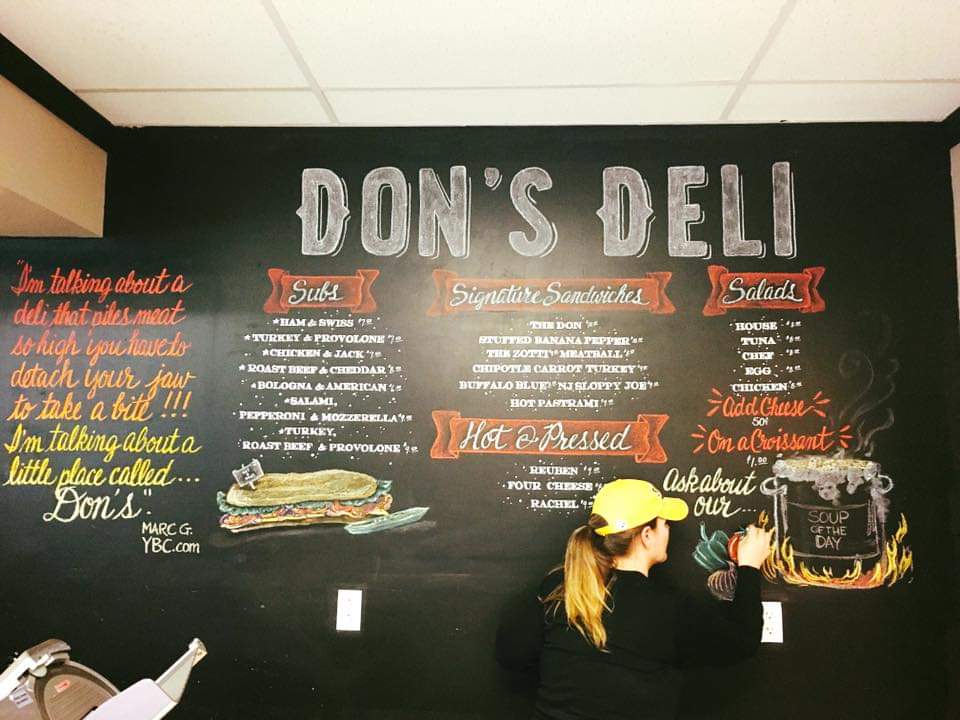 DON'S DELI
"I'm talking about a
deli that piles meat
so high you have to
detach your jaw
to take a bite !!!
I'm talking about a
little place called...
Don's".
MARC G.
YBC.com
Subs
*HAM & SWISS
*TURKEY & PROVOLONE
*CHICKEN & JACK
*ROAST BEEF & CHEDDAR
*BOLOGNA & AMERICAN
*SALAMI,
PEPPERONI & MOZZERELLA
*TURKEY,
ROAST BEEF & PROVOLONE
Signature Sandwiches
THE DON
STUFFED BANANA PEPPER
THE ZOTTI MEATBALL
CHIPOTLE CARROT TURKEY
BUFFALO BLUE NJ SLOPPY JOE
HOT PASTRAMI
Hot & Pressed
REUBEN
FOUR CHEESE
RACHEL
Salads
HOUSE
TUNA
CHEF
EGG
CHICKEN
Add Cheese
50¢
On a Croissant
$1.00
Ask about
our...
SOUP
OF THE
DAY